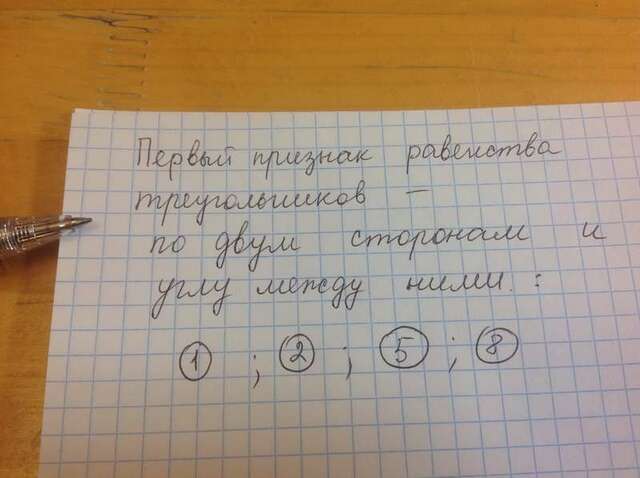 Первый признак равенства
треугольников –
по двум сторонам и
углу между ними. :
1 ; 2 ; 5 ; 8